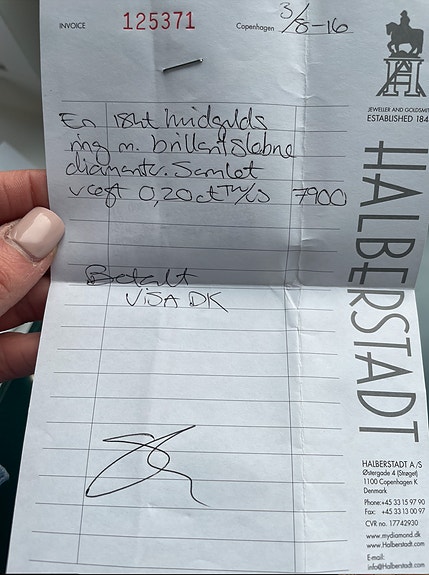 INVOICE 125371 Copenhagen 3/8-16
JEWELLER AND GOLDSMIT
ESTABLISHED 184
HALBERSTADT
En 18kt hvidgulds
ring m. brillantslebne
diamanter. Samlet
vægt 0,20ct TW/S 7900
Betalt
VISA DK
HALBERSTADT A/S
Østergade 4 (Strøget)
1100 Copenhagen K
Denmark
Phone:+45 33 15 97 90
Fax: +45 33 13 00 97
CVR no. 17742930
www.mydiamond.dk
www.Halberstadt.com
E-mail:
info@Halberstadt.com